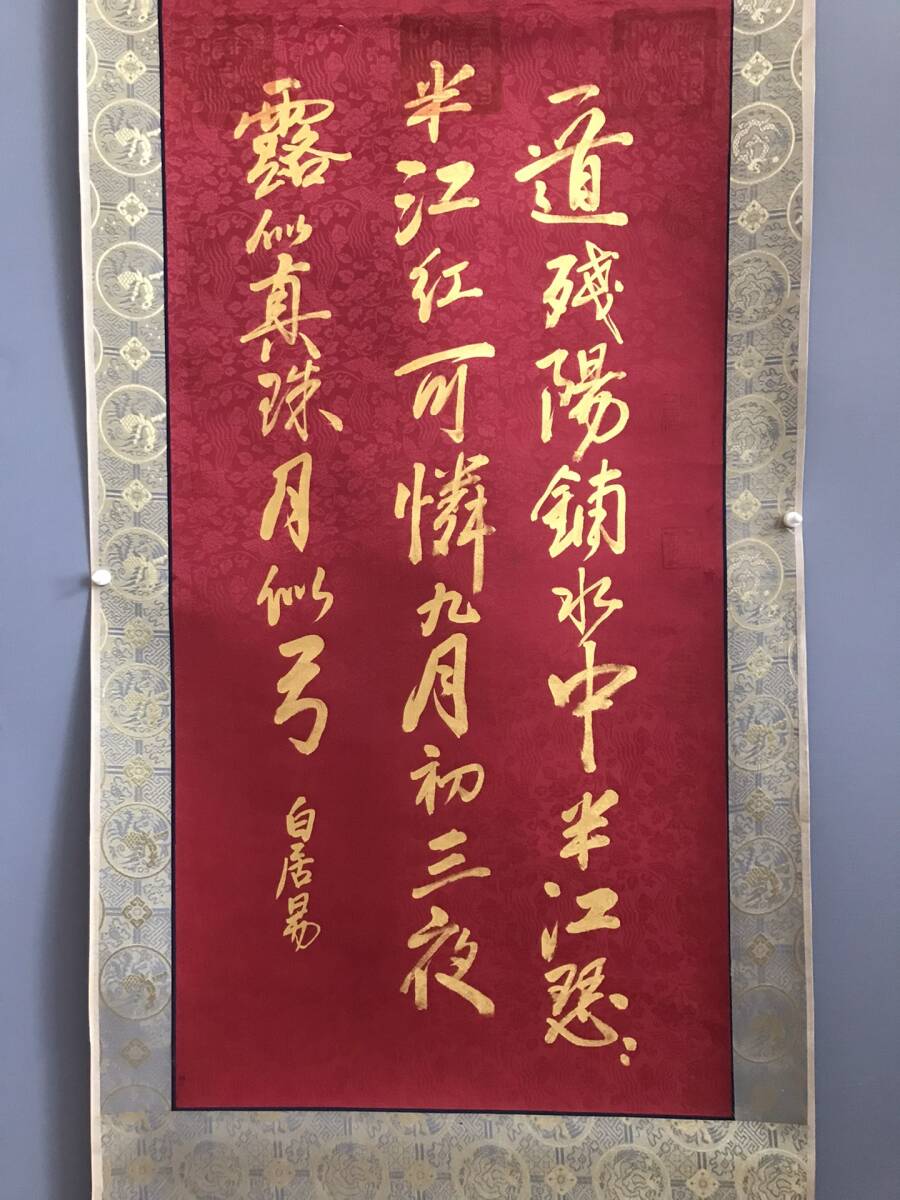 一道残陽鋪水中半江瑟:
半江红可憐九月初三夜
露似真珠月似弓
白居易